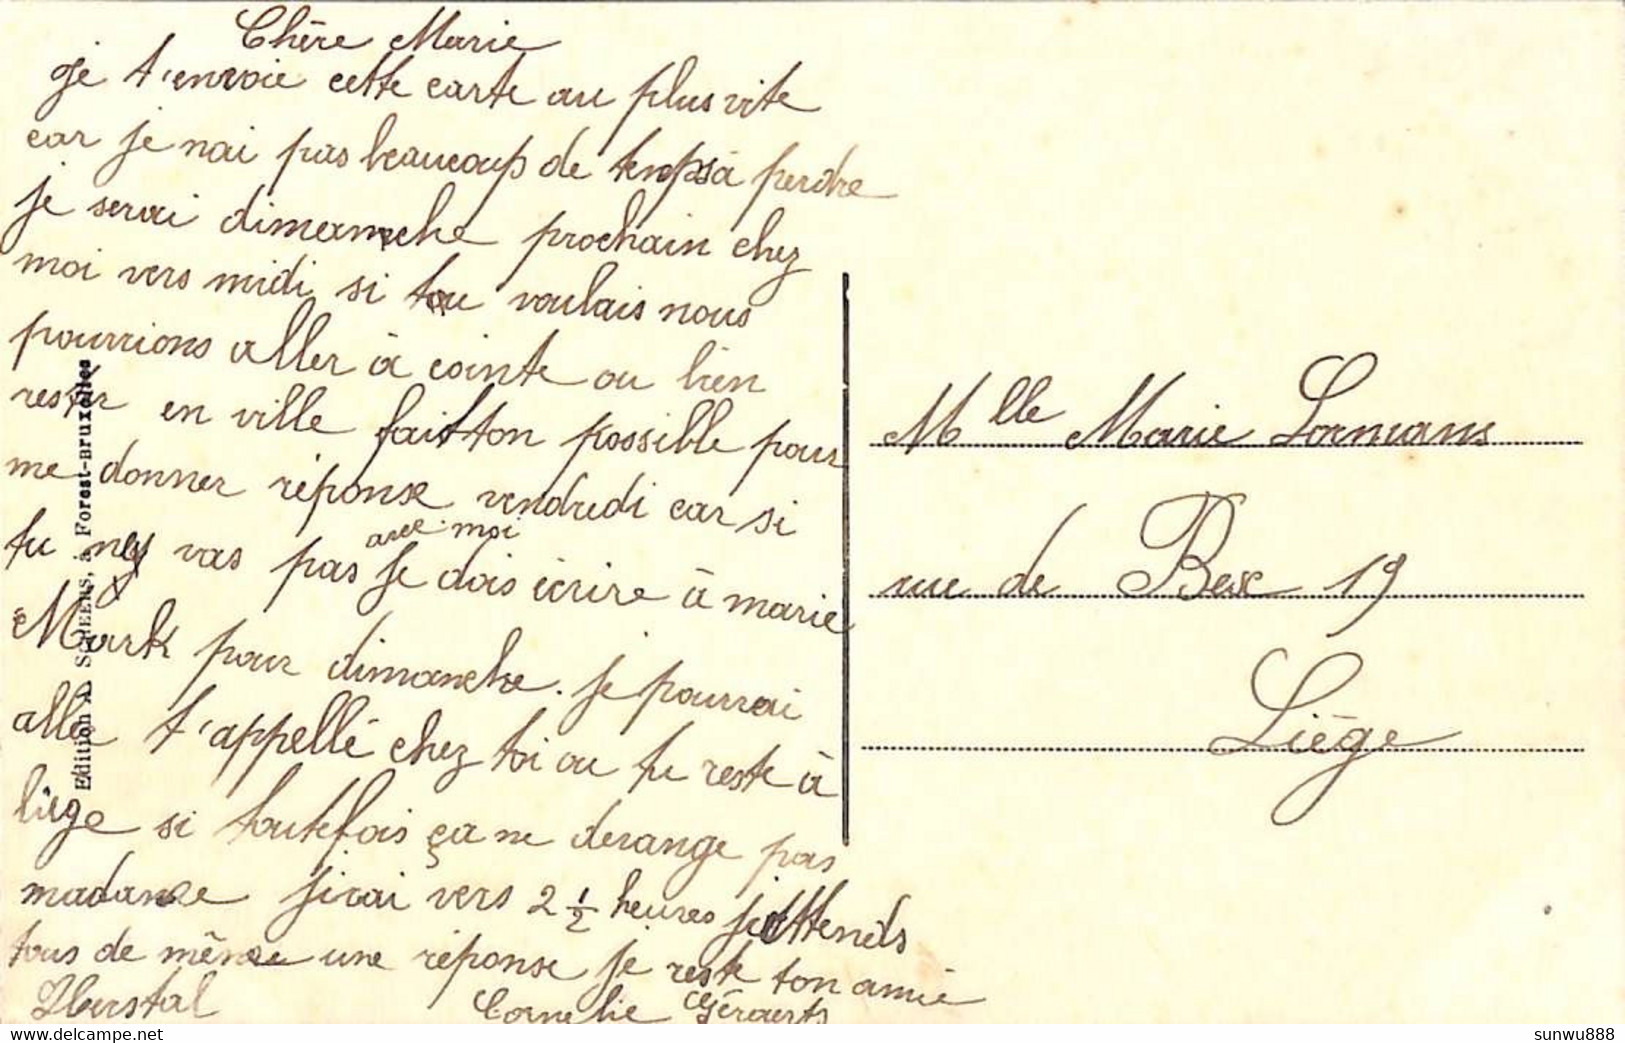 Chère Marie
je t'envoie cette carte au plus vite
car je nai pas beaucoup de temps à perdre
je serai dimanche prochain chez
moi vers midi si tu voulais nous
pourrions aller à cointe ou bien
rester en ville fait ton possible pour
me donner réponse vendredi car si
tu ny vas pas avec moi je dois écrire à marie
Mark pour dimanche. je pourrai
aller t'appellé chez toi ou tu reste à
liège si toutefois ça ne derange pas
madame jirai vers 2 1/2 heures j'attends
tous de même une réponse je reste ton amie
Herstal Cornelie Géraerts
Mlle Marie Lormans
rue de Bex 19
Liège
Edition A. SCHEERS, à Forest-Bruxelles
sunwu888